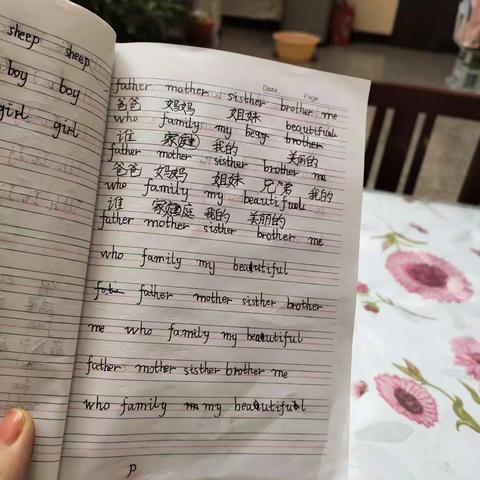 sheep sheep
boy boy
girl girl
Date Page
father mother sisther brother me
爸爸 妈妈 姐妹
who family my beautiful
谁 家庭 我的 美丽的
father mother sisther brother me
爸爸 妈妈 姐妹 兄弟 我的
who family my beautiful
谁 家庭 我的 美丽的
father mother sisther brother me
who family my beautiful
father mother sisther brother
me who family my beautiful
father mother sisther brother me
who family my beautiful
p